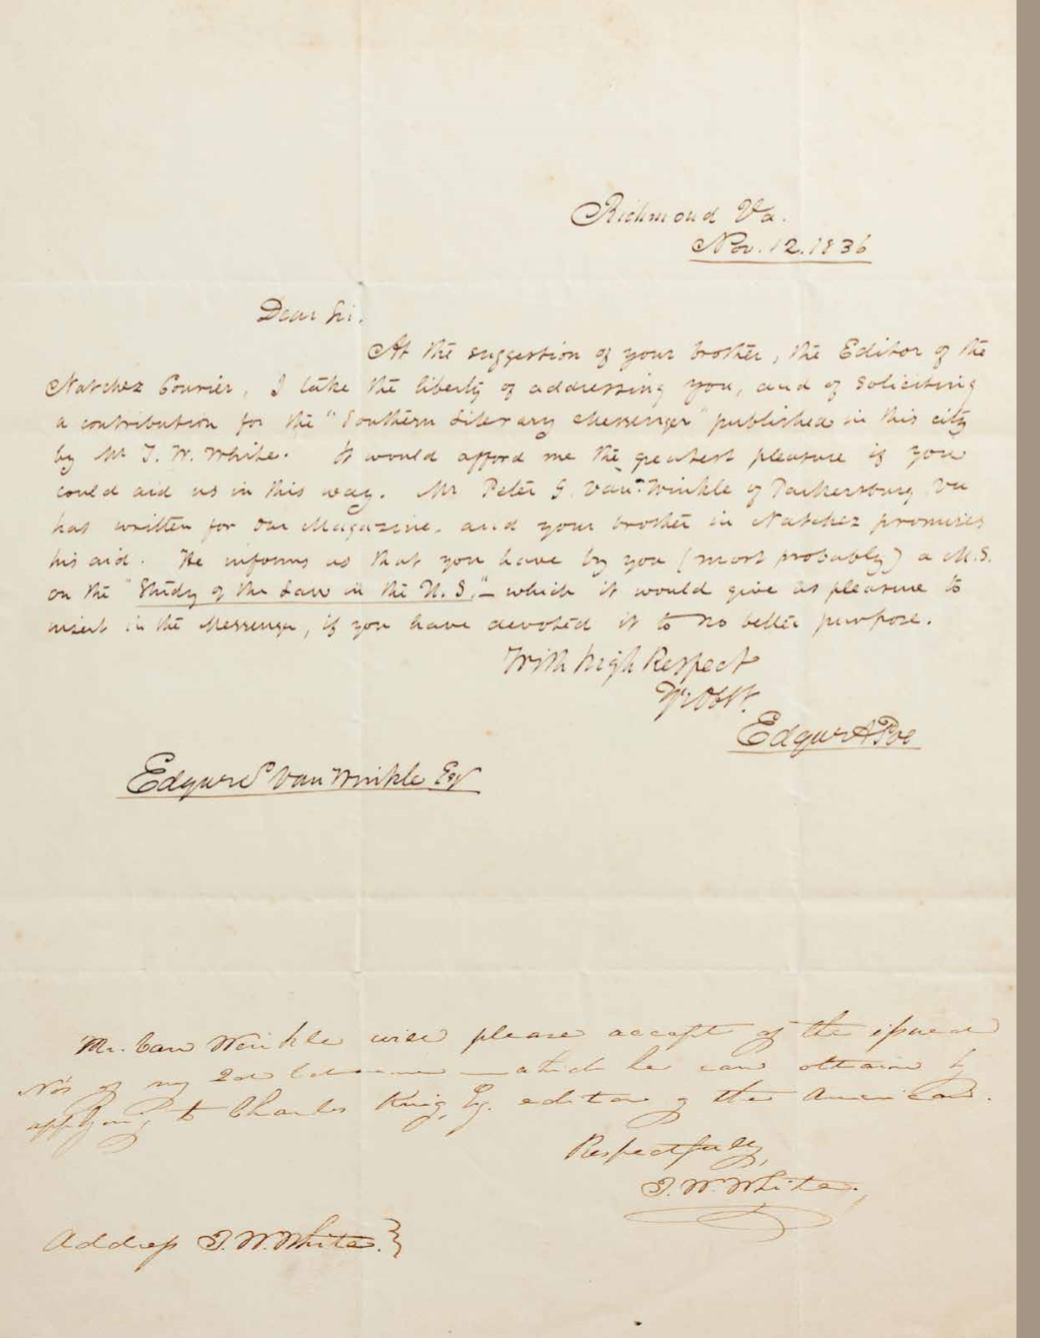 Richmond Va.
Nov. 12. 1836
Dear Sir.
At the suggestion of your brother, the Editor of the
Natchez Courier, I take the liberty of addressing you, and of soliciting
a contribution for the "Southern Literary Messenger" published in this city
by Mr T. W. White. It would afford me the greatest pleasure if you
could aid us in this way. Mr Peter G. Van-Winkle of Parkersburg Va
has written for our Magazine, and your brother in Natchez promises
his aid. He informs us that you have by you (most probably) a M.S.
on the "Study of the Law in the U. S."— which it would give us pleasure to
insert in the Messenger, if you have devoted it to no better purpose.
With high Respect
Yr. Ob St.
Edgar A Poe
Edgar S Van Winkle Esqr
Mr. Van Winkle will please accept of the issued
Nos of my 2nd — which he can obtain by
applying to Charles King, Esq. editor of the American.
Respectfully,
T. W. White.
Address T. W. White. }